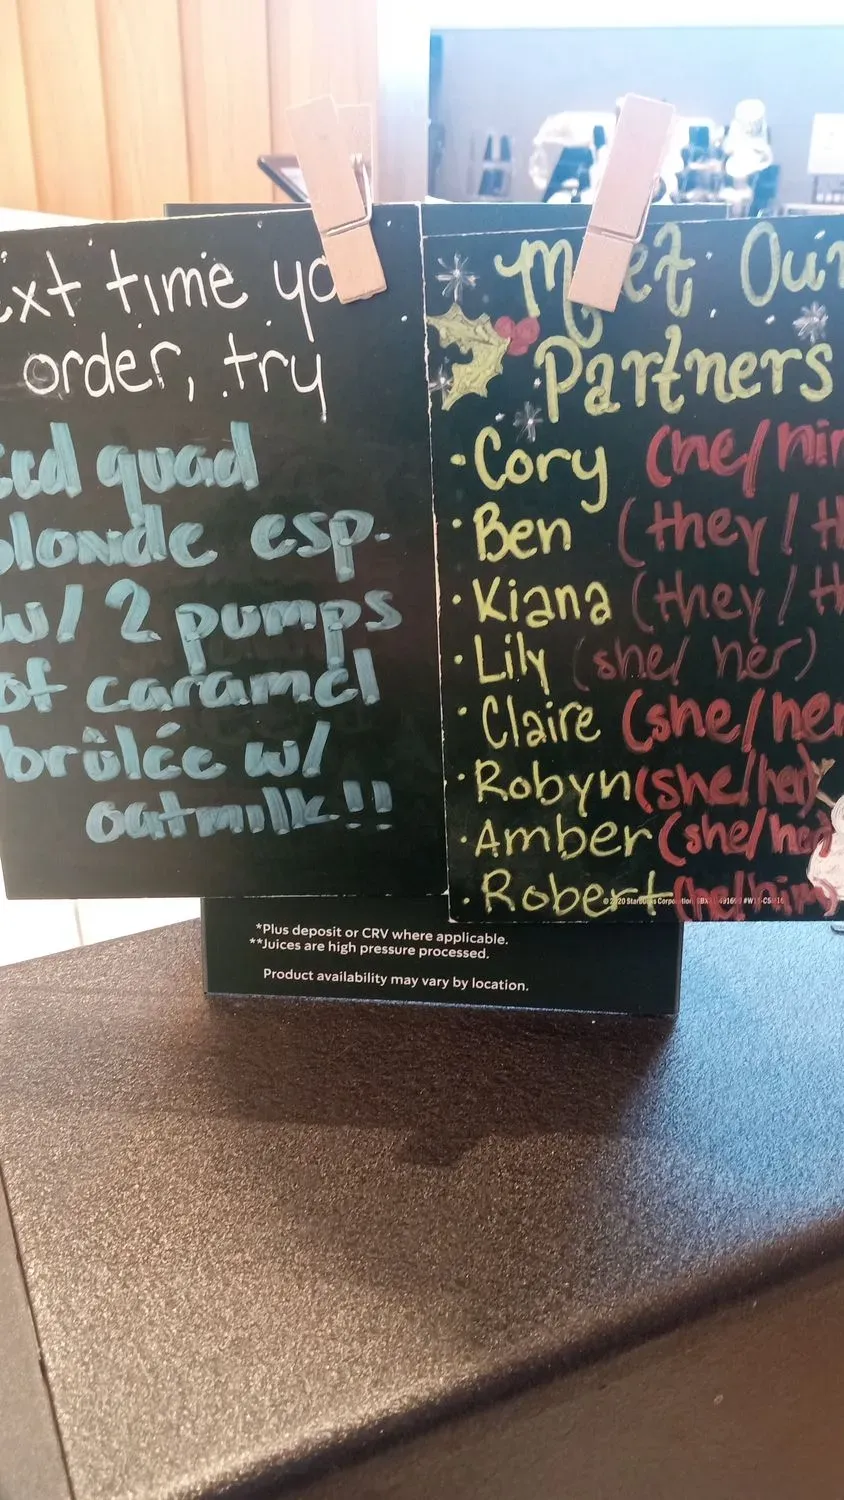 ext time yo
order, try
ced quad
blonde esp.
w/ 2 pumps
of caramel
brûlée w/
oatmilk!!
Meet Our
Partners
· Cory (he/him
· Ben (they/th
· Kiana (they/th
· Lily (she/her)
· Claire (she/her
· Robyn (she/her)
· Amber (she/her)
· Robert (he/him)
© 2020 Starbucks Corporation.
*Plus deposit or CRV where applicable.
**Juices are high pressure processed.
Product availability may vary by location.